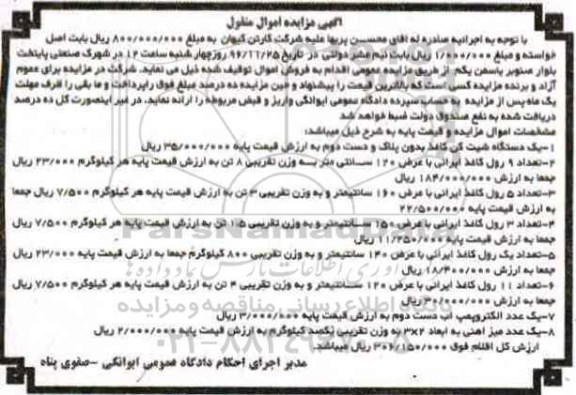 آگهی مزایده اموال منقول
با توجه به اجرائیه صادره له آقای محسن پریها علیه شرکت کارتن کیهان به مبلغ ۸۰۰/۰۰۰/۰۰۰ ریال بابت اصل
خواسته و مبلغ ۱/۰۰۰/۰۰۰ ریال بابت نیم عشر دولتی در تاریخ ۹۶/۱۱/۲۵ روز چهارشنبه ساعت ۱۲ در شهرک صنعتی پایتخت
بلوار صنوبر یاسمن یکم از طریق مزایده عمومی اقدام به فروش اموال توقیف شده ذیل می نماید. شرکت در مزایده برای عموم
آزاد و برنده مزایده کسی است که بالاترین قیمت را پیشنهاد و حین مزایده ده درصد مبلغ فوق را پرداخت و ما بقی را ظرف مهلت
یک ماه پس از مزایده به حساب سپرده دادگاه عمومی ایوانکی واریز و قبض مربوطه را ارائه نماید. در غیر اینصورت کل ده درصد
دریافت شده به نفع صندوق دولت ضبط خواهد شد
مشخصات اموال مزایده و قیمت پایه به شرح ذیل میباشد:
۱-یک دستگاه شیت کن کاغذ بدون پلاک و دست دوم به ارزش قیمت پایه ۳۵/۰۰۰/۰۰۰ ریال
۲-تعداد ۹ رول کاغذ ایرانی با عرض ۱۲۰ سانتی متر به وزن تقریبی ۸ تن به ارزش قیمت پایه هر کیلوگرم ۲۳/۰۰۰
ریال جمعا به ارزش ۱۸۴/۰۰۰/۰۰۰ ریال
۳-تعداد ۵ رول کاغذ ایرانی با عرض ۱۶۰ سانتیمتر و به وزن تقریبی ۳ تن به ارزش قیمت پایه هر کیلوگرم ۷/۵۰۰ ریال جمعا
به ارزش قیمت پایه ۲۲/۵۰۰/۰۰۰
۴-تعداد ۳ رول کاغذ ایرانی با عرض ۱۵۰ سانتیمتر و به وزن تقریبی ۱.۵ تن به ارزش قیمت پایه هر کیلوگرم ۷/۵۰۰ ریال
جمعا به ارزش قیمت پایه ۱۱/۲۵۰/۰۰۰ ریال
۵-تعداد یک رول کاغذ ایرانی با عرض ۱۴۰ سانتیمتر و به وزن تقریبی ۸۰۰ کیلوگرم جمعا به ارزش قیمت پایه ۲۳/۰۰۰ ریال
جمعا به ارزش ۱۸/۴۰۰/۰۰۰ ریال
۶-تعداد ۱۱ رول کاغذ ایرانی با عرض ۱۲۰ سانتیمتر و به وزن تقریبی ۴ تن به ارزش قیمت پایه هر کیلوگرم ۷/۵۰۰ ریال
جمعا به ارزش ۳۰/۰۰۰/۰۰۰ ریال
۷-یک عدد الکتروپمپ آب دست دوم به ارزش قیمت پایه ۳/۰۰۰/۰۰۰ ریال
۸-یک عدد میز آهنی به ابعاد ۳×۲ به وزن تقریبی یکصد کیلوگرم به ارزش قیمت پایه ۲/۰۰۰/۰۰۰ ریال
ارزش کل اقلام فوق ۳۰۶/۱۵۰/۰۰۰ ریال میباشد.
مدیر اجرای احکام دادگاه عمومی ایوانکی -صفوی پناه
ParsNamadData
پایگاه اطلاع رسانی مناقصه و مزایده